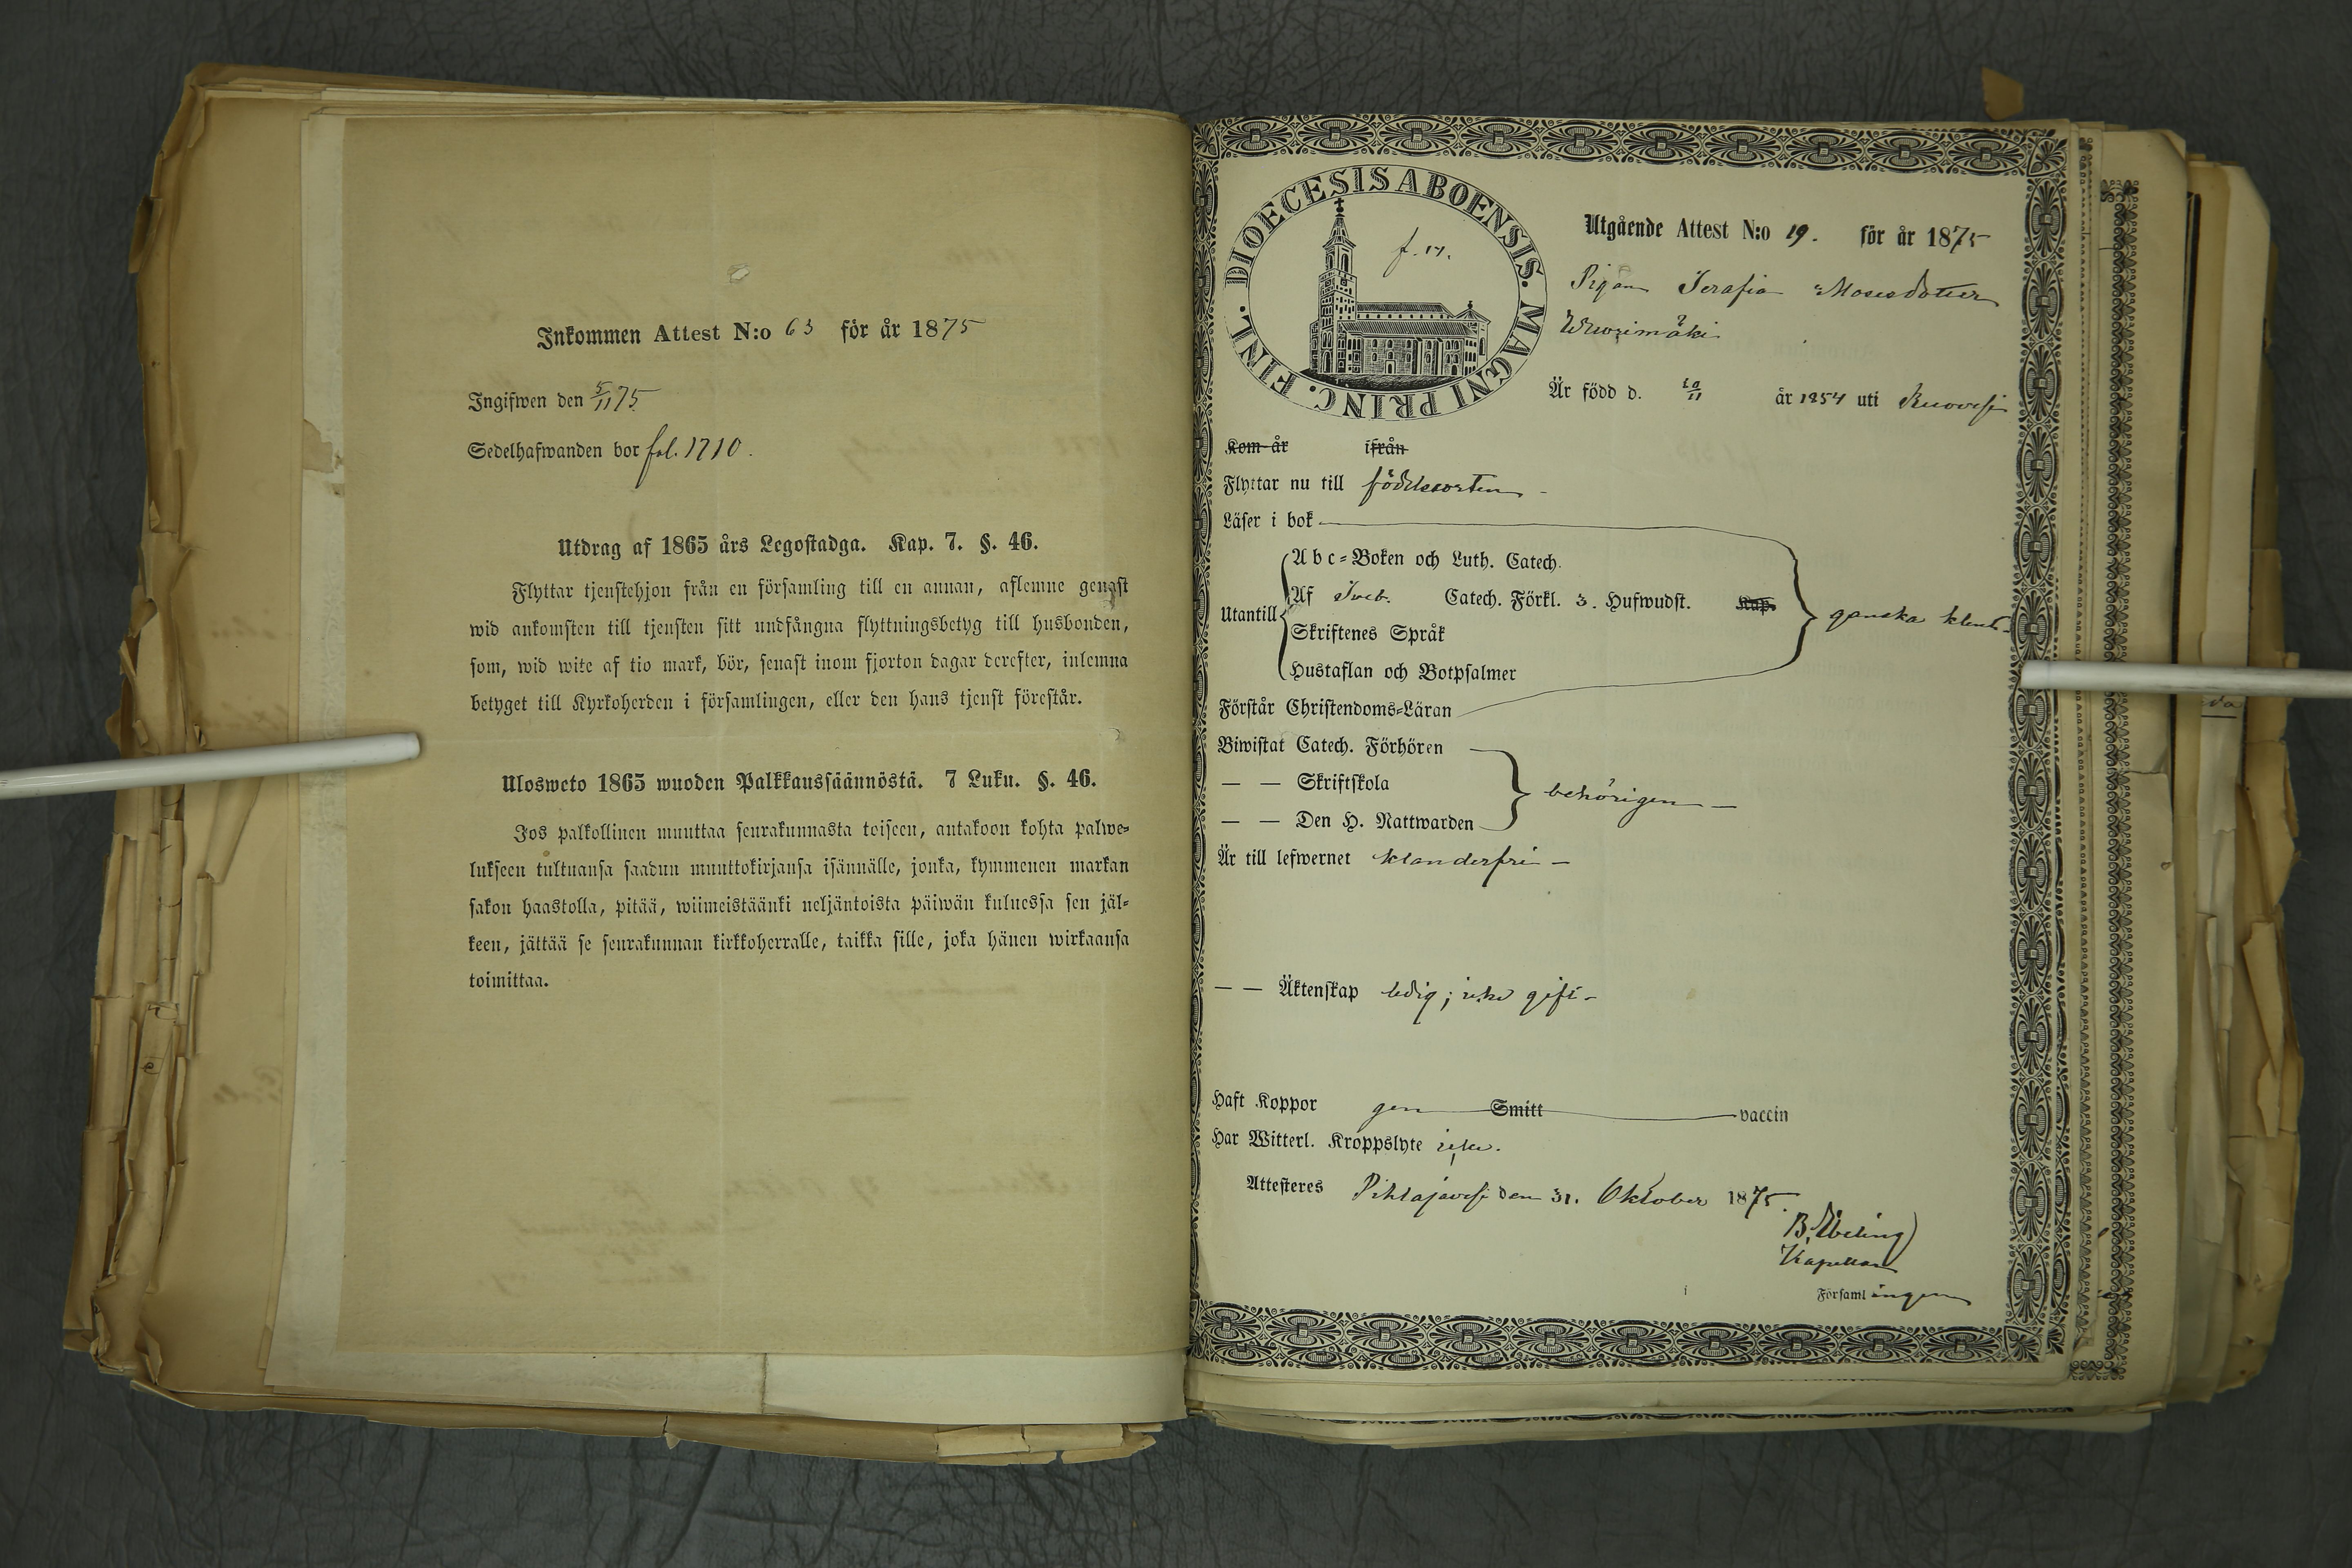 Inkommen Attest N:o 63 för år 1875
Ingifwen den 5/11 75
Sedelhafwanden bor fol. 1710.
Utdrag af 1865 års Legostadga. Kap. 7. §. 46.
Flyttar tjenstehjon från en församling till en annan, aflemne genast
wid ankomsten till tjensten sitt undfångna flyttningsbetyg till husbonden,
som, wid wite af tio mark, bör, senast inom fjorton dagar derefter, inlemna
betyget till Kyrkoherden i församlingen, eller den hans tjenst förestår.
Ulosweto 1865 wuoden Palkkaussäännöstä. 7 Luku. §. 46.
Jos palkollinen muuttaa seurakunnasta toiseen, antakoon kohta palwe-
lukseen tultuansa saadun muuttokirjansa isännälle, jonka, kymmenen markan
sakon haastolla, pitää, wiimeistäänki neljäntoista päiwän kuluessa sen jäl-
keen, jättää se seurakunnan kirkkoherralle, taikka sille, joka hänen wirkaansa
toimittaa.
DIOECESIS ABOENSIS. MAGNI PRINC. FINL.
f. 17.
Utgående Attest N:o 19. för år 1875
Pigan Serafia Mosesdotter
Wuorimäki
Är född d. 20/11 år 1854 uti Ruovesi
Kom år ifrån
Flyttar nu till födelseorten -
Läser i bok
Abc-Boken och Luth. Catech.
Utantill Af Sveb. Catech. Förkl. 3. Hufwudst. Kap. ganska klent.
Skriftenes Språk
Hustaflan och Botpsalmer
Förstår Christendoms-Läran
Biwistat Catech. Förhören
— — Skriftskola behörigen —
— — Den H. Nattwarden
Är till lefwernet klanderfri —
— — Äktenskap ledig; icke gift -
Haft Koppor gen Smitt vaccin
Har Witterl. Kroppslyte icke.
Attesteres Pihlajavesi den 31. Oktober 1875.
Kapellan
Församlingen